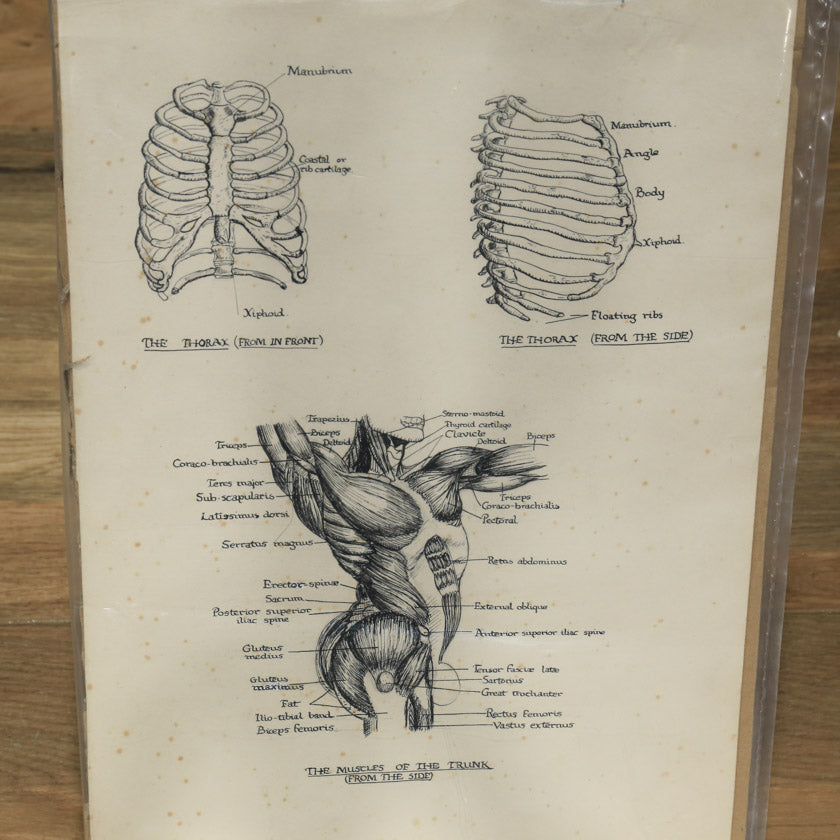 Manubrium
Coastal or
rib cartilage
Xiphoid
THE THORAX (FROM IN FRONT)
Manubrium.
Angle
Body
Xiphoid
Floating ribs
THE THORAX (FROM THE SIDE)
Trapezius
Biceps
Deltoid
Triceps
Coraco-brachialis
Teres major
Sub-scapularis
Latissimus dorsi
Serratus magnus
Erector-spinæ
Sacrum
Posterior superior
iliac spine
Gluteus
medius
Gluteus
maximus
Fat
Ilio-tibial band
Biceps femoris
Sterno-mastoid
Thyroid cartilage
Clavicle
Deltoid
Biceps
Triceps
Coraco-brachialis
Pectoral
Retus abdominus
External oblique
Anterior superior iliac spine
Tensor fasciæ latæ
Sartorius
Great trochanter
Rectus femoris
Vastus externus
THE MUSCLES OF THE TRUNK
(FROM THE SIDE)